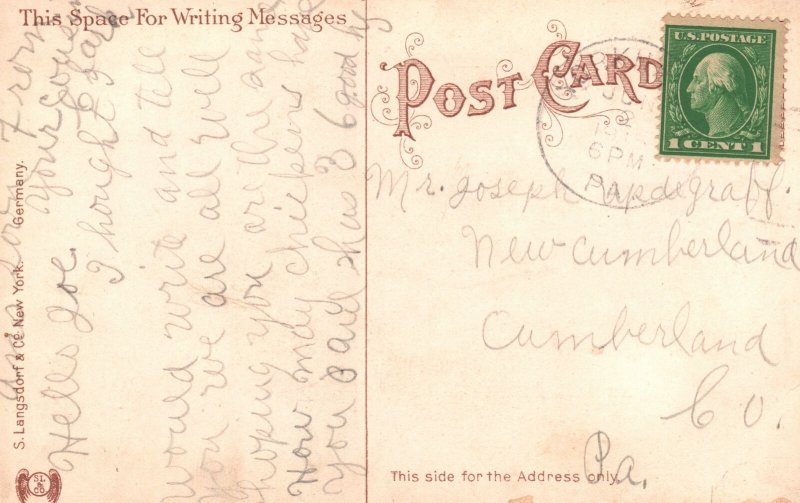 This Space For Writing Messages
Hello Joe.
I thought I
would write and tell
you we are all well
hoping you are the same
How may chickens have
you Carl has 36 good by
From
your Cousin
S. Langsdorf & Co. New York. Germany.
SL & CO
POST CARD
U.S. POSTAGE
1 CENT 1
6 PM
PA.
Mr. Joseph Updegraff.
New Cumberland
Cumberland
Co.
Pa.
This side for the Address only.